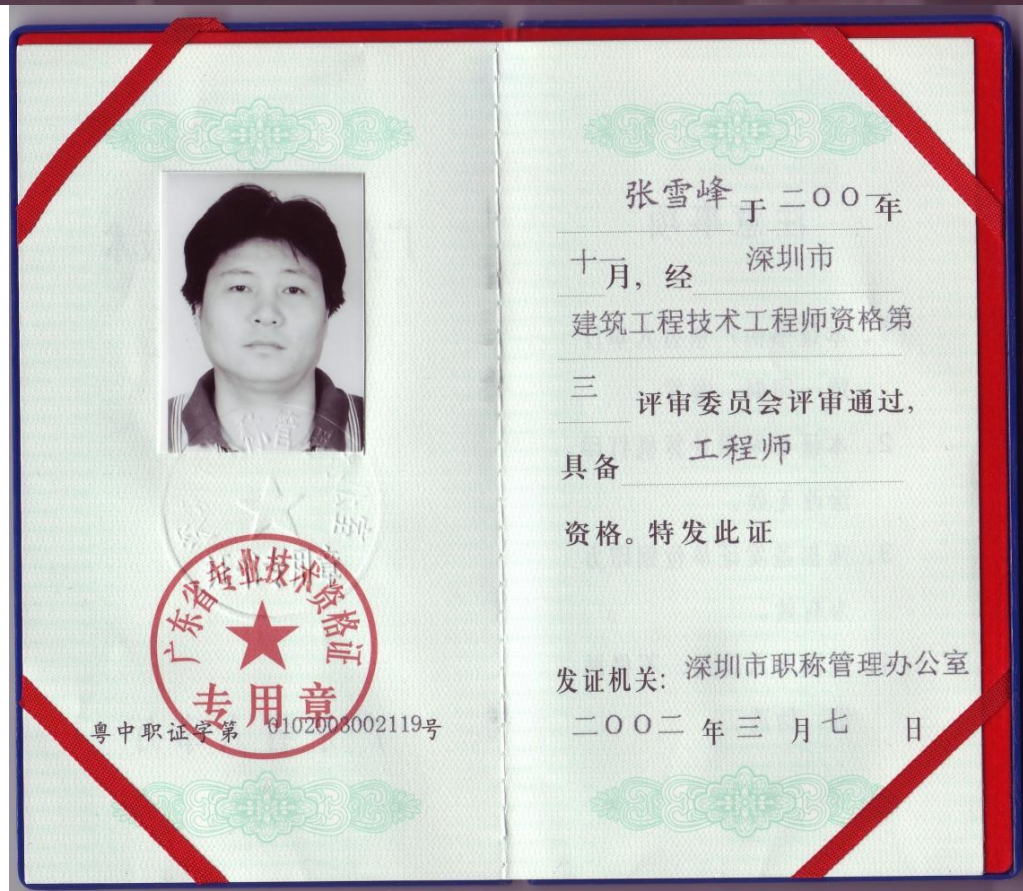 广东省专业技术资格证
专用章
粤中职证字第 0102003002119号
张雪峰 于 二〇〇一 年
十一月, 经 深圳市
建筑工程技术工程师资格第
三 评审委员会评审通过,
具备 工程师
资格。特发此证
发证机关: 深圳市职称管理办公室
二〇〇二 年 三 月 七 日